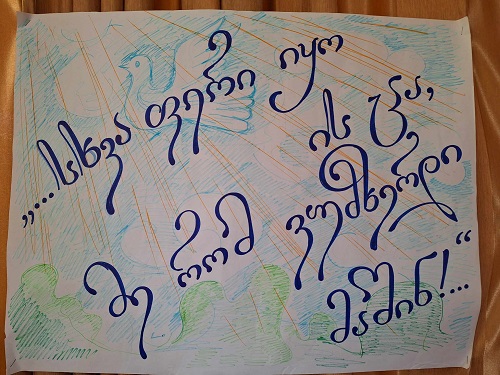 „...სხვაფერი იყო
ის ცა,
მე რომ ვუმზერდი
მაშინ!...“